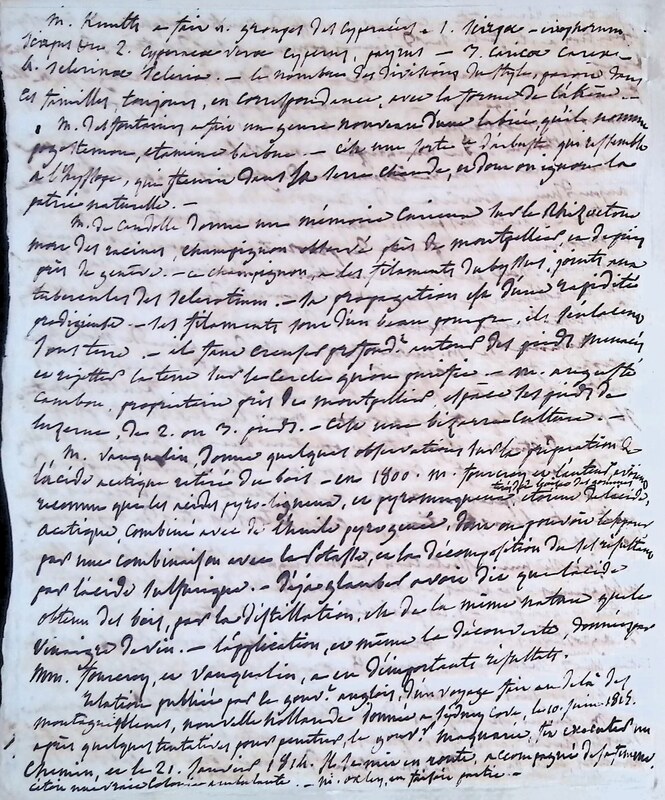 M. Kunth a fait 4. groupes des Cyperacées - 1. Scirpeæ - eriophorum
Scirpus &c. 2. Cyperaceæ veræ cyperus, papyrus - 3. Cariceæ Carex -
4. Sclerineæ Scleria. - le nombre des divisions du style, paroit dans
ces familles, toujours, en correspondance, avec la forme de l'akène. -
M. des fontaines a fait un genre nouveau d'une labiée qu'il nomme
pogostemon, etamine barbue. - C'est une sorte d'arbuste qui ressemble
à l'hyssope, qui fleurit dans la serre chaude, et dont on ignore la
patrie naturelle. -
M. de Candolle donne un mémoire curieux sur le Rhizoctone
mort des racines, champignon observé près de montpellier, et depuis
près de genève. - ce champignon, a les filaments du byssus, joints aux
tubercules des sclerotium. - sa propagation est d'une rapidité
prodigieuse. - ses filaments sont d'un beau pourpre, ils s'enlacent
sous terre. - il faut creuser profondt. autour des pieds menacés
et rejetter la terre sur le cercle qu'on purifie. - M. auguste
Cambon, propriétaire près de montpellier, espace les pieds de
luzerne, de 2. ou 3. pieds. - C'est une bizarre culture. -
M. Vauquelin, donne quelques observations sur la préparation de
l'acide acetique retiré du bois - en 1800. M. fourcroy et lauteur avoient
reconnu que les acides pyro-ligneux, et pyromuqueux, tirés des gommes etoient de l'acide
acetique, combiné avec de l'huile pyrogenée, dont on pouvoit le séparer
par une combinaison avec la Potasse, et la décomposition du sel résultant
par l'acide sulfurique. - Déja glauber avoit dit que l'acide
obtenu des bois, par la distillation, est de la même nature que le
Vinaigre de vin. - l'application, et même la découverte, données par
MM. fourcroy, et Vauquelin, a eu d'importants résultats.
Relation publiée par le gouvt. anglois, d'un voyage fait au delà des
montagnes bleues, nouvelle hollande donnée à Sydney Cove, le 10. Juin 1815.
après quelques tentatives pour penetrer, le gouvr. Maquarie, fit executer un
Chemin, et le 21. Janvier 1814. Il se mit en route, accompagné de sa femme,
c'etoit une vraie Colonie ambulante. - M. oxley, en faisoit partie. -